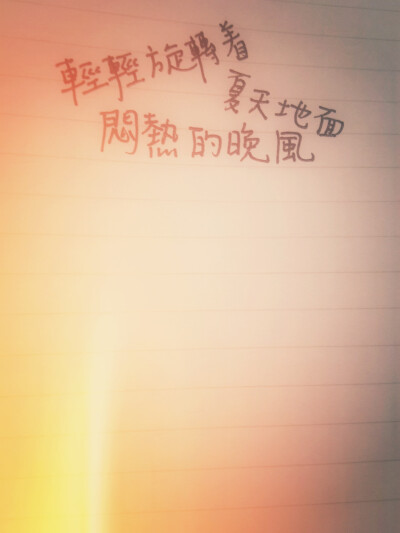 輕輕旋轉着
夏天地面
悶熱的晚風